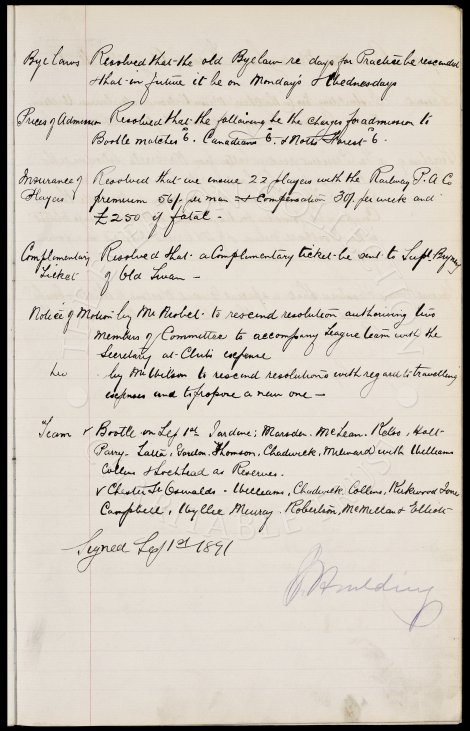 Bye Laws Resolved that the old Byelaw re days for Practice be rescended
& that in future it be on Mondays & Wednesdays
Prices of Admission Resolved that the following be the Charges for admission to
Bootle matches 6. Canadians 6. & Notts Forest 6.
Insurance of Players Resolved that we ensure 22 players with the Railway P. A Co
premium 56/- per man Compensation 30/- per week and
£250 if fatal -
Complimentary Ticket Resolved that a Complimentary ticket be sent to Supt.
of Old Swan -
Notice of Motion by Mr to rescend resolution authorising two
Members of Committee to accompany League team with the
Secretary at Clubs expense
by Mr Wilson to rescend resolutions with regard to travelling
expenses and to propose a new one -
Team v Bootle on Sep 1st Jardine; Marsden. McLean. Kelso. Holt
Parry. Latta. Gordon. Thomson, Chadwick, Milward with Williams
Collins & Lochhead as Reserves.
v Chester St Oswalds - Williams, Chadwick Collins, Kirkwood Jone
Campbell, Wyllie Murray. Robertson, McMillan & Elliott
Signed Sep 1st 1891
J Houlding